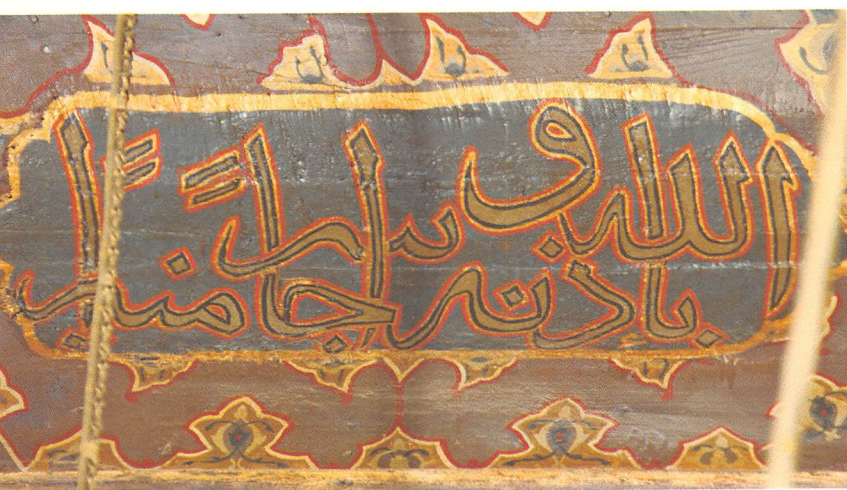 الله باذنه وسراجاً منيراً